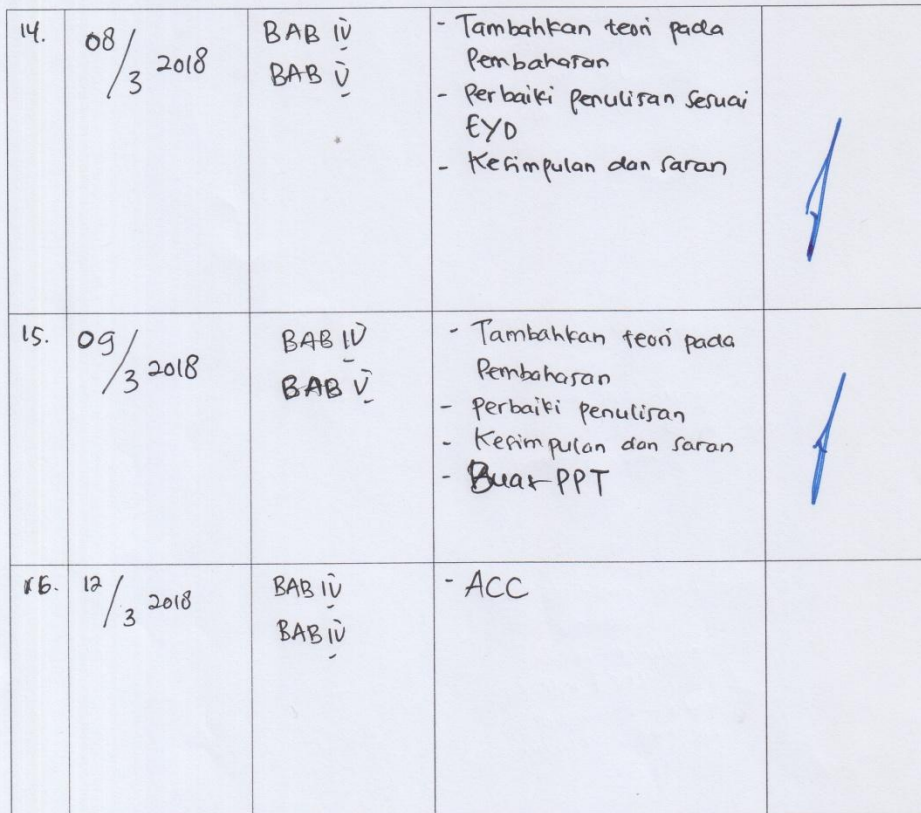 14. 08/3 2018 BAB IV - Tambahkan teori pada
BAB V Pembahasan
- Perbaiki penulisan sesuai
EYD
- Kesimpulan dan saran
15. 09/3 2018 BAB IV - Tambahkan teori pada
BAB V Pembahasan
- perbaiki penulisan
- Kesimpulan dan saran
- Buat PPT
16. 12/3 2018 BAB IV - ACC
BAB IV